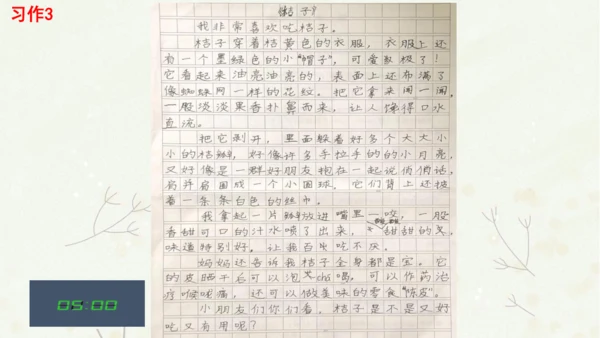 习作3
桔子
我非常喜欢吃桔子。
桔子穿着桔黄色的衣服，衣服上还
有一个墨绿色的小“帽子”，可爱极了！
它看起来油亮油亮的，表面上还布满了
像蜘蛛网一样的花纹。把它拿来闻一闻，
一股淡淡果香扑鼻而来，让人馋得口水
直流。
把它剥开，里面躲着好多个大大小
小的桔瓣，好像许多手拉手的的小月亮，
又好像是一群好朋友抱在一起说俏俏话，
围成一个小圆球。它们背上还披
着一条条白色的丝巾。
我拿起一片瓣放进嘴里一咬，一股
香甜可口的汁水喷了出来，酸酸甜甜的
味道特别好，让我百吃不厌。
妈妈还告诉我桔子全身都是宝。它
的皮晒干后可以泡chá喝，可以作药治
疗喉咙痛，还可以做美味的零食“陈皮”。
小朋友们你们看，桔子是不是又好
吃又有用呢？
05:00